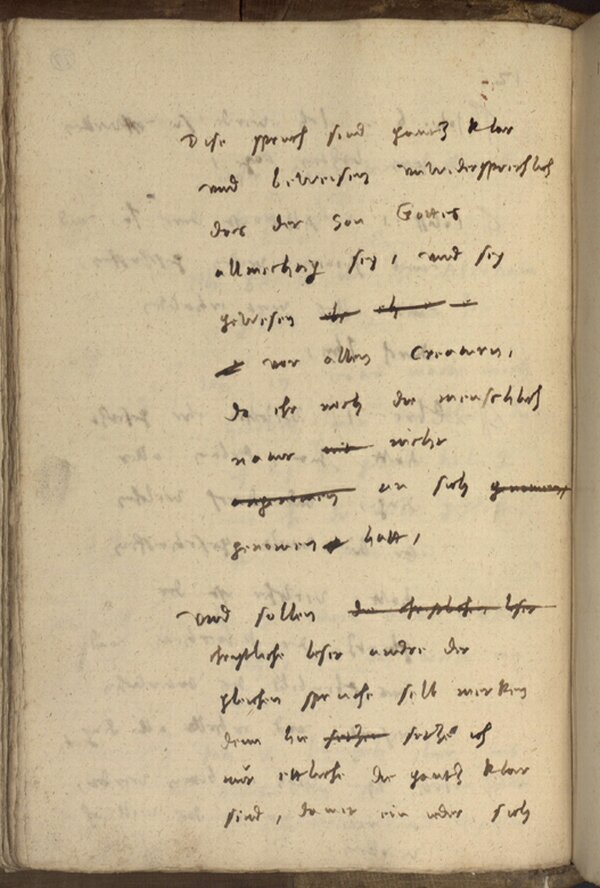 Dise spruch sind gantz klar
und beweisen unwidersprechlich
das der Son Gottes
allmechtig sey, und sey
gewesen
vor allen Creaturn,
da ehr noch die menschlich
natur nicht
an sich
genomen hatt,
Und sollen die christliche leser
christliche leser andre der
gleichen spruche selb merken
denn hie setze ich
nur ettliche die gantz klar
sind, damit ein ieder sich